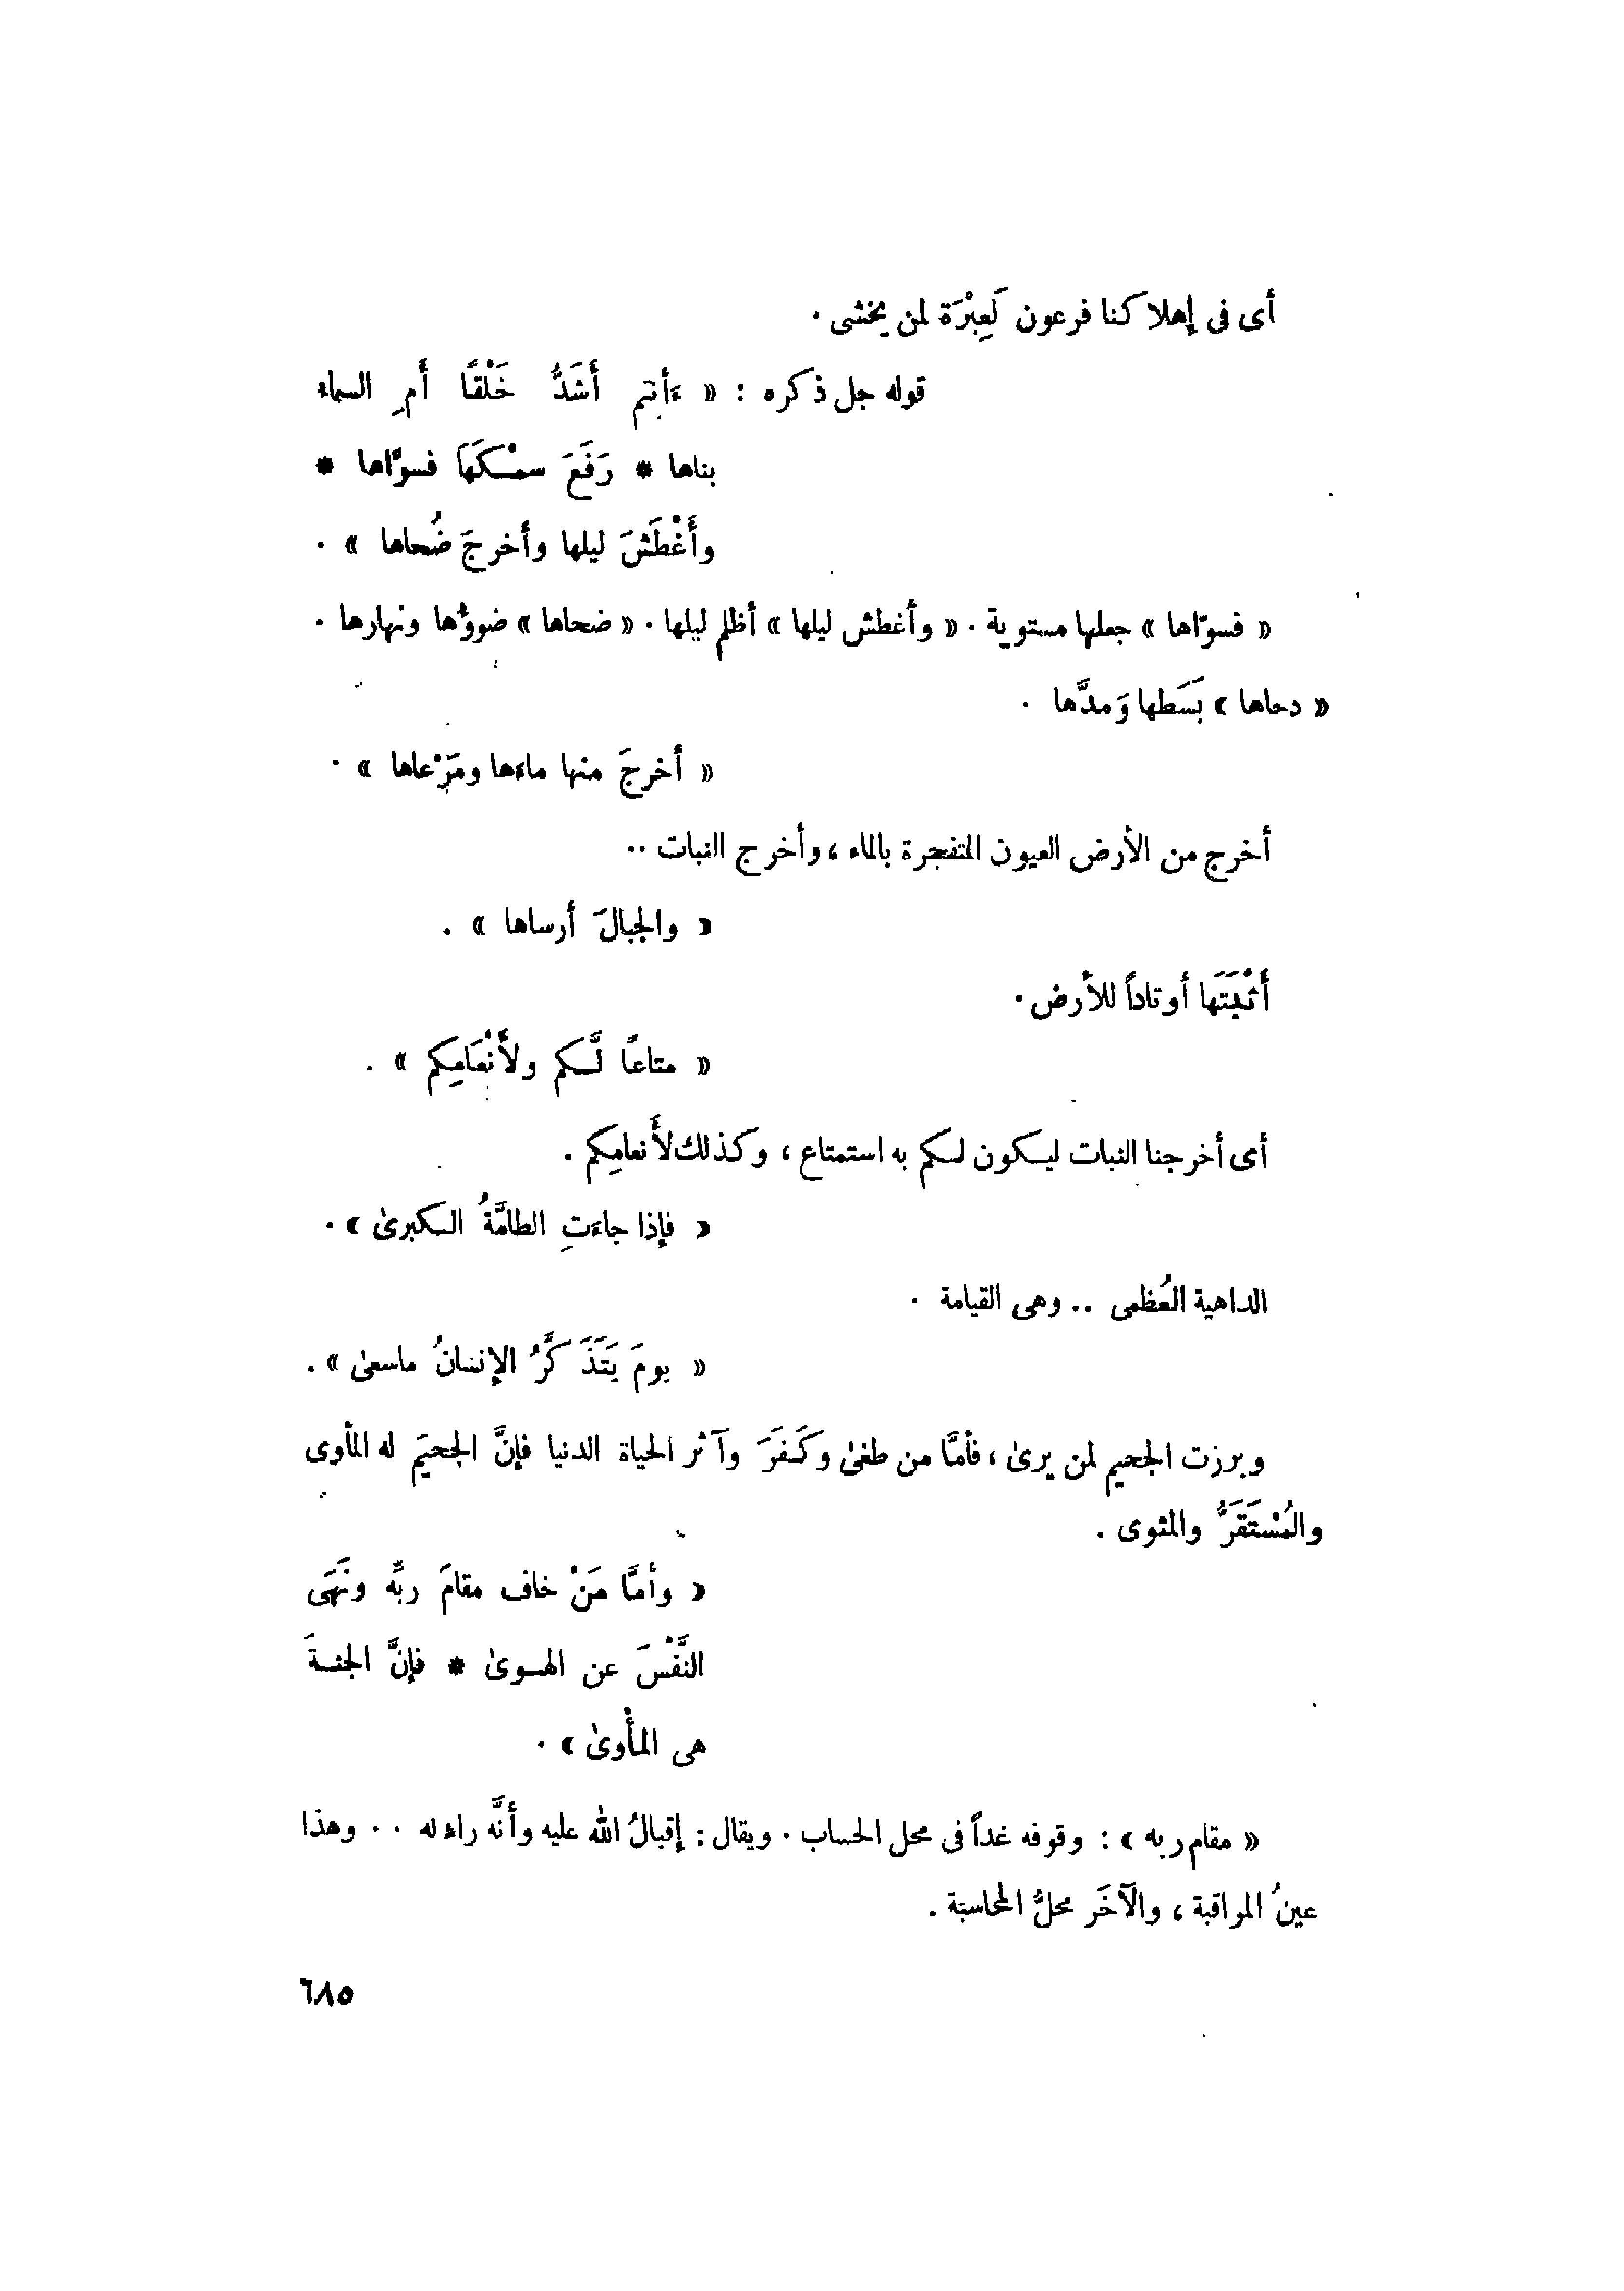 أى فى إهلاكنا فرعون لَعِبْرَة لمن يخشى .
قوله جل ذكره : « ءَأنتم أَشَدُّ خَلْقًا أَمِ السماء
بناها * رَفَعَ سمْكَهَا فسوَّاها *
وأَغْطَشَ ليلها وأخرجَ ضُحاها » .
« فسوّاها » جعلها مستوية . « وأغطش ليلها » أظلم ليلها . « ضحاها » ضوؤُها ونهارها .
« دحاها » بَسَطها وَمدَّها .
« أخرجَ منها ماءَها ومَرْعاها » .
أخرج من الأرض العيون المتفجرة بالماء ، وأخرج النبات ..
« والجبالَ أرساها » .
أَثْبَتَهَا أوتاداً للأرض .
« متاعًا لَّكم ولأَنْعَامِكم » .
أى أخرجنا النبات ليكون لكم به استمتاع ، وكذلك لأَنعامِكم .
« فإذا جاءَتِ الطامَّةُ الكبرىٰ » .
الداهية العُظمى .. وهى القيامة .
« يومَ يَتَذَكَّرُ الإنسانُ ماسعىٰ » .
وبرزت الجحيم لمن يرىٰ ، فأمَّا من طغىٰ وكَفَرَ وآثر الحياة الدنيا فإنَّ الجحيَم له المأوى
والمُسْتَقَرُّ والمثوى .
« وأمَّا مَنْ خاف مقامَ ربِّه ونَهَى
النَّفْسَ عن الهوىٰ * فإنَّ الجنةَ
هى المأْوىٰ » .
« مقام ربه » : وقوفه غداً فى محل الحساب . ويقال : إقبالُ الله عليه وأنَّه راءٍ له .. وهذا
عينُ المراقبة ، والآخَر محلُّ المحاسبة .
٦٨٥